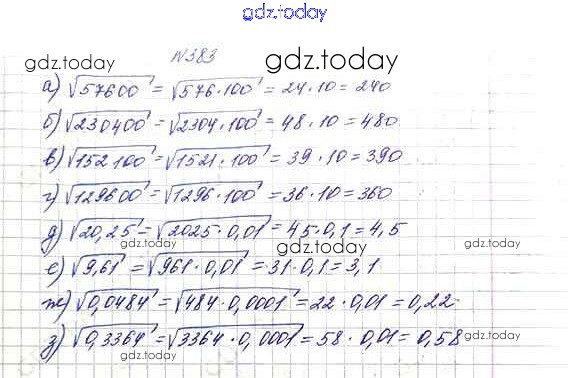 gdz.today
N383
gdz.today
gdz.today
а) √57600 = √576·100 = 24·10 = 240
б) √230400 = √2304·100 = 48·10 = 480
в) √152100 = √1521·100 = 39·10 = 390
г) √129600 = √1296·100 = 36·10 = 360
д) √20,25 = √2025·0,01 = 45·0,1 = 4,5
gdz.today
gdz.today
gdz.today
е) √9,61 = √961·0,01 = 31·0,1 = 3,1
ж) √0,0484 = √484·0,0001 = 22·0,01 = 0,22
з) √0,3364 = √3364·0,0001 = 58·0,01 = 0,58
gdz.today
gdz.today